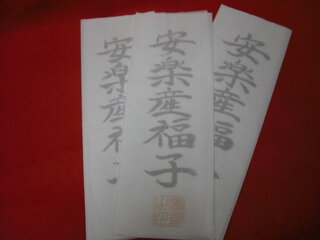 安楽産福
安楽産福子
安楽産福